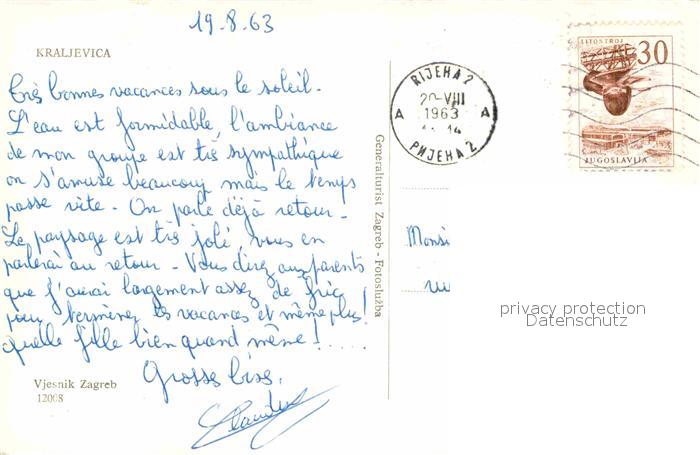 19.8.63
KRALJEVICA
Très bonnes vacances sous le soleil.
L'eau est formidable, l'ambiance
de mon groupe est très sympathique
on s'amuse beaucoup mais le temps
passe vite. On parle déjà retour.
Le paysage est très joli, vous en
parlerai au retour. Vous direz aux parents
que j'aurai largement assez de fric
pour terminer les vacances et même plus!
quelle fille bien quand même!.....
Grosses bises.
Vjesnik Zagreb
12008
Generalturist Zagreb - Fotoslužba
RIJEKA 2
20-VIII
1963
A A
РИЈЕКА 2
LITOSTROJ
30
JUGOSLAVIJA
Monsi
privacy protection
Datenschutz